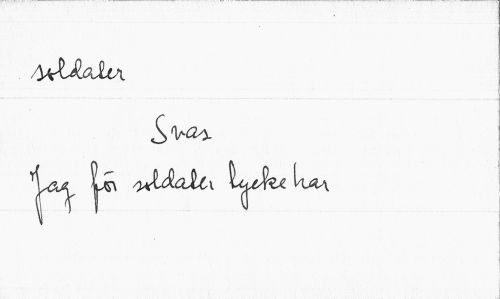 soldater
Svas
Jag för soldater lycke har